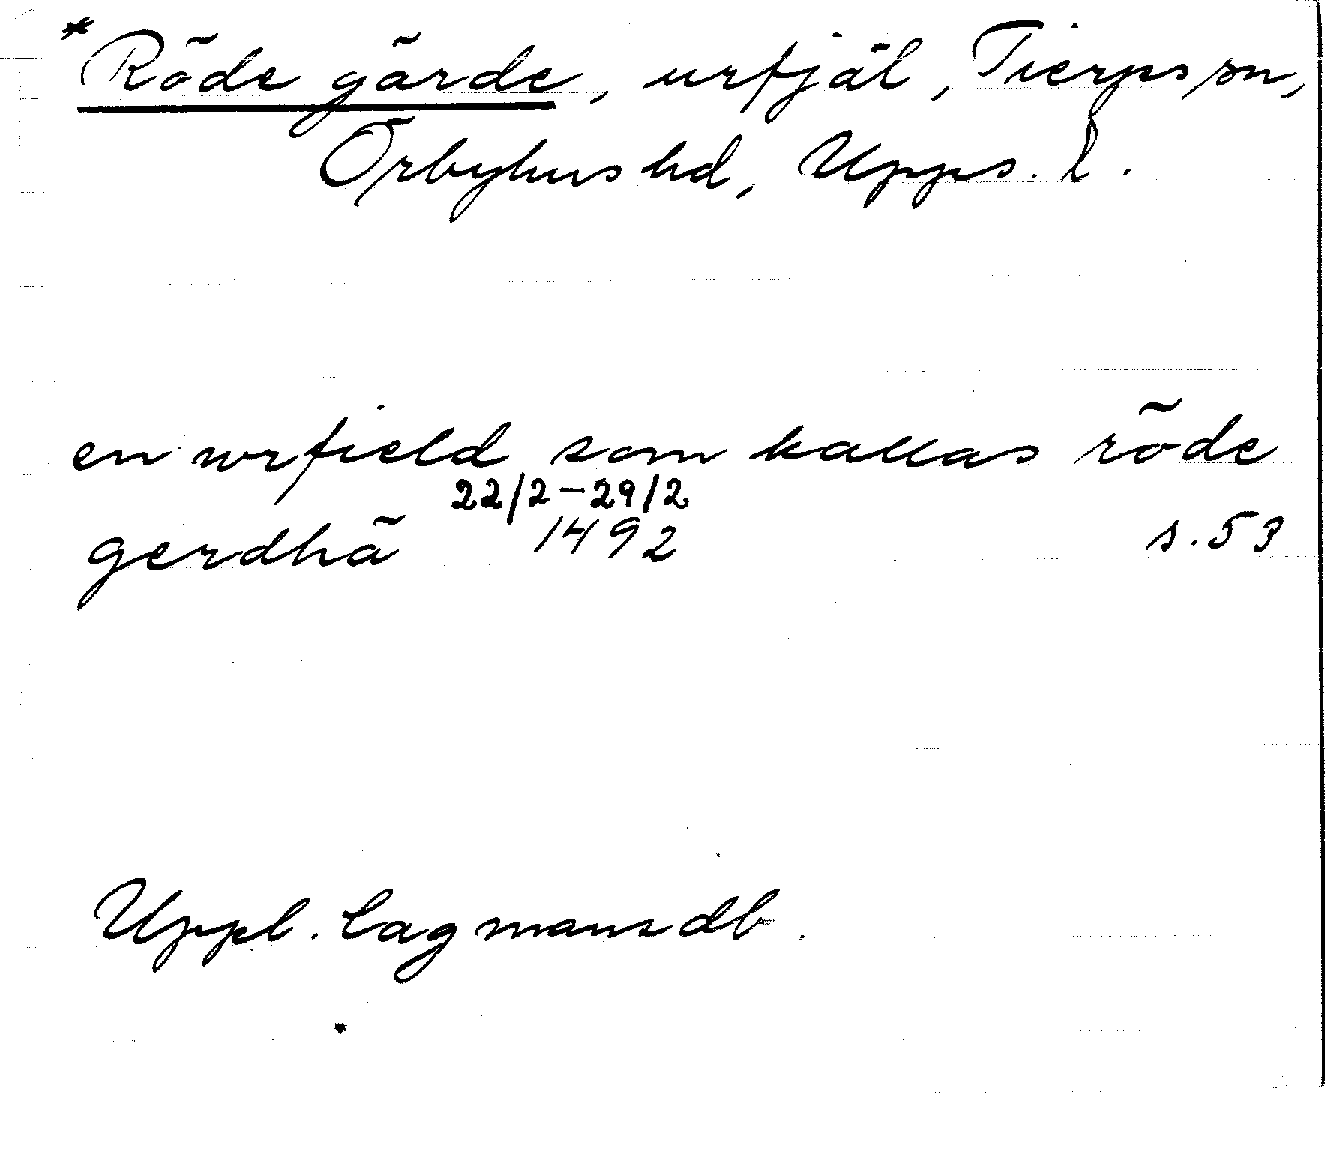 *Röde gärde, urfjäl, Tierps sn,
Örbyhus hd, Upps. l.
en wrfield som kallas röde
22/2-29/2
gerdhä 1492 s. 53
Uppl. lagmansdb.